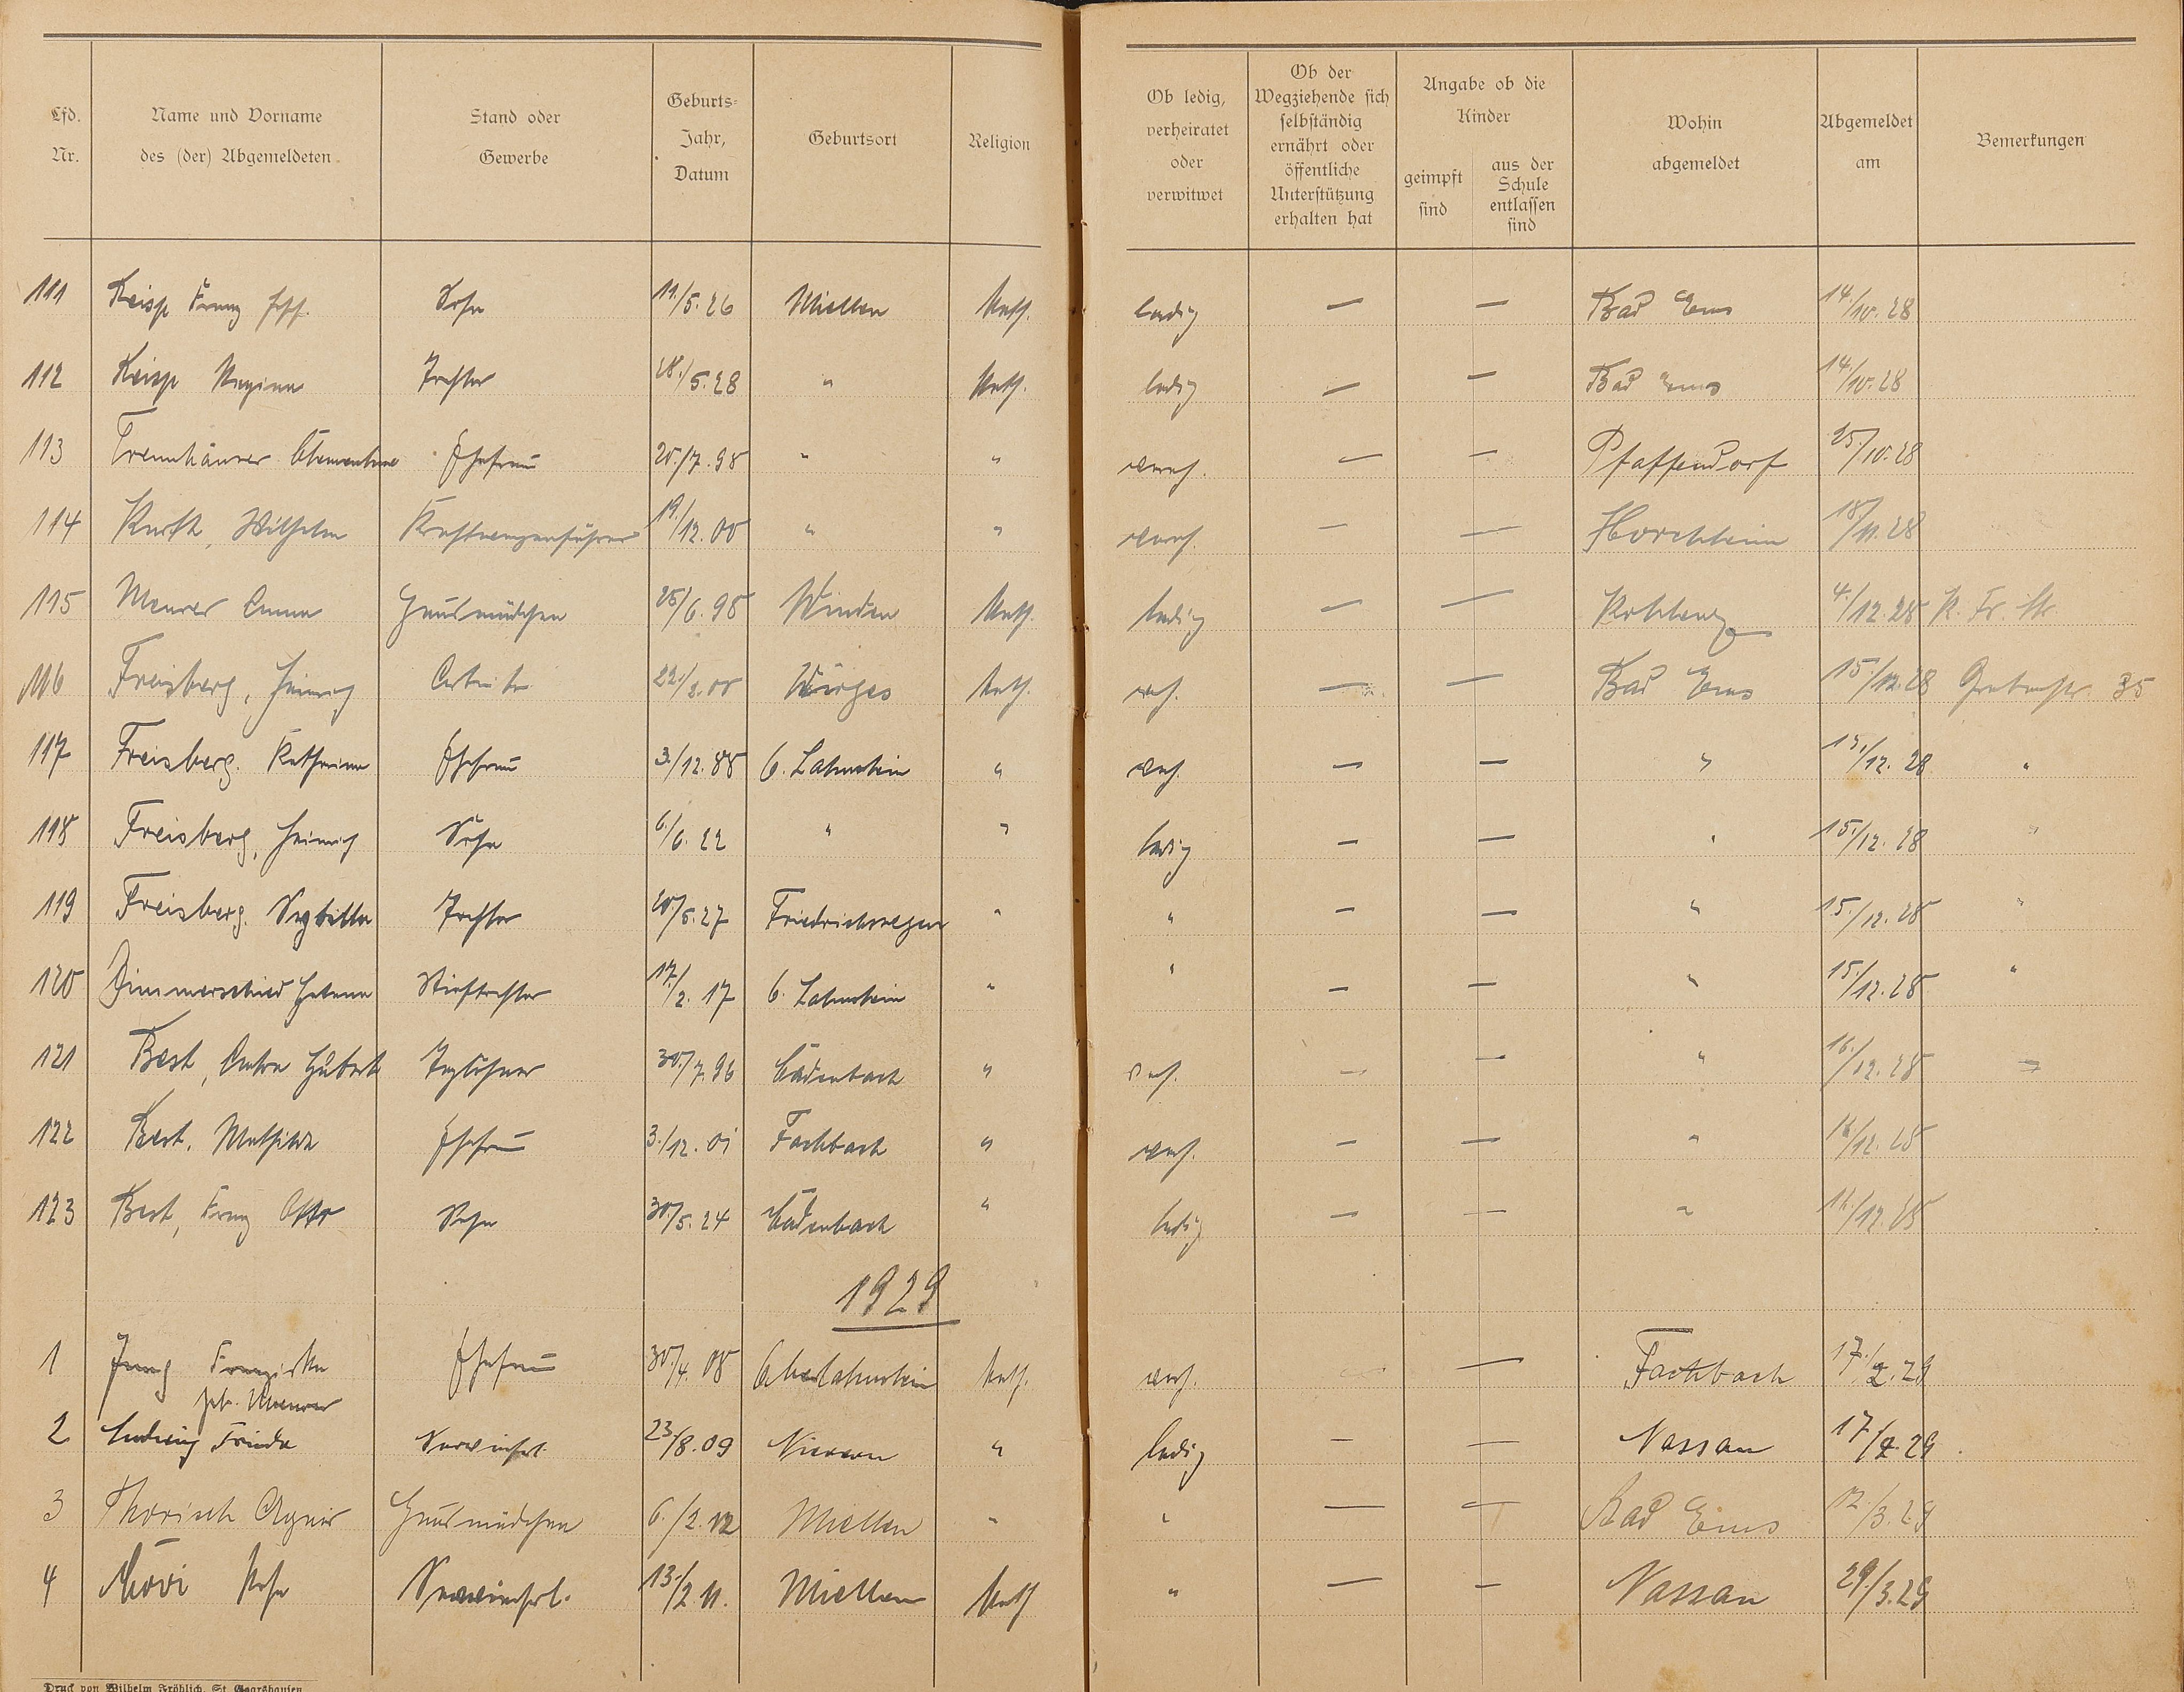 Lfd. Nr. | Name und Vorname des (der) Abgemeldeten | Stand oder Gewerbe | Geburts-Jahr, Datum | Geburtsort | Religion | Ob ledig, verheiratet oder verwitwet | Ob der Wegziehende sich selbständig ernährt oder öffentliche Unterstützung erhalten hat | Angabe ob die Kinder geimpft sind | aus der Schule entlassen sind | Wohin abgemeldet | Abgemeldet am | Bemerkungen
111 Franz Sohn 11./5.26 Miellen Kath. ledig — — Bad Ems 14./10.28
112 Regina Tochter 28./5.28 " Kath. ledig — — Bad Ems 14./10.28
113 Clementine Ehefrau 20./7.98 " " verh. — — Pfaffendorf 25./10.28
114 Wilhelm Kraftwagenführer 19./12.00 " " verh. — — Horchheim 18./11.28
115 Meurer Emma Hausmädchen 25./6.98 Winden Kath. ledig — — Koblenz 4./12.28
116 Freisberg, Heinrich Arbeiter 22./2.00 Wirges Kath. verh. — — Bad Ems 15./12.28 Grabenstr. 35
117 Freisberg. Katharina Ehefrau 3./12.88 O. Lahnstein " verh. — — " 15./12.28 "
118 Freisberg, Heinrich Sohn 6./6.22 " " ledig — — " 15./12.28 "
119 Freisberg. Tochter 20./5.27 Friedrichssegen " " — — " 15./12.28 "
120 Zimmerschied Helena Stieftochter 17./2.17 O. Lahnstein " " — — " 15./12.28 "
121 Best, Anton Hubert Taglöhner 30./7.96 Cadenbach " verh. — — " 16./12.28
122 Best. Mathilde Ehefrau 3./12.01 Fachbach " verh. — — " 16./12.28
123 Best, Franz Otto Sohn 30./5.24 Cadenbach " ledig — — " 16./12.28
1929
1 Jung Franziska Ehefrau 30./4.08 Oberlahnstein kath. verh. — — Fachbach 17./2.29
geb. Meurer
2 Ludwig Frieda 23./8.09 Nievern " ledig — — Nassau 17./2.29
3 Agnes Hausmädchen 6./2.12 Miellen " " — — Bad Ems 12./3.29
4 13./2.11. Miellen Kath " — — Nassau 29./3.29
Druck von Wilhelm Fröhlich, St. Goarshausen